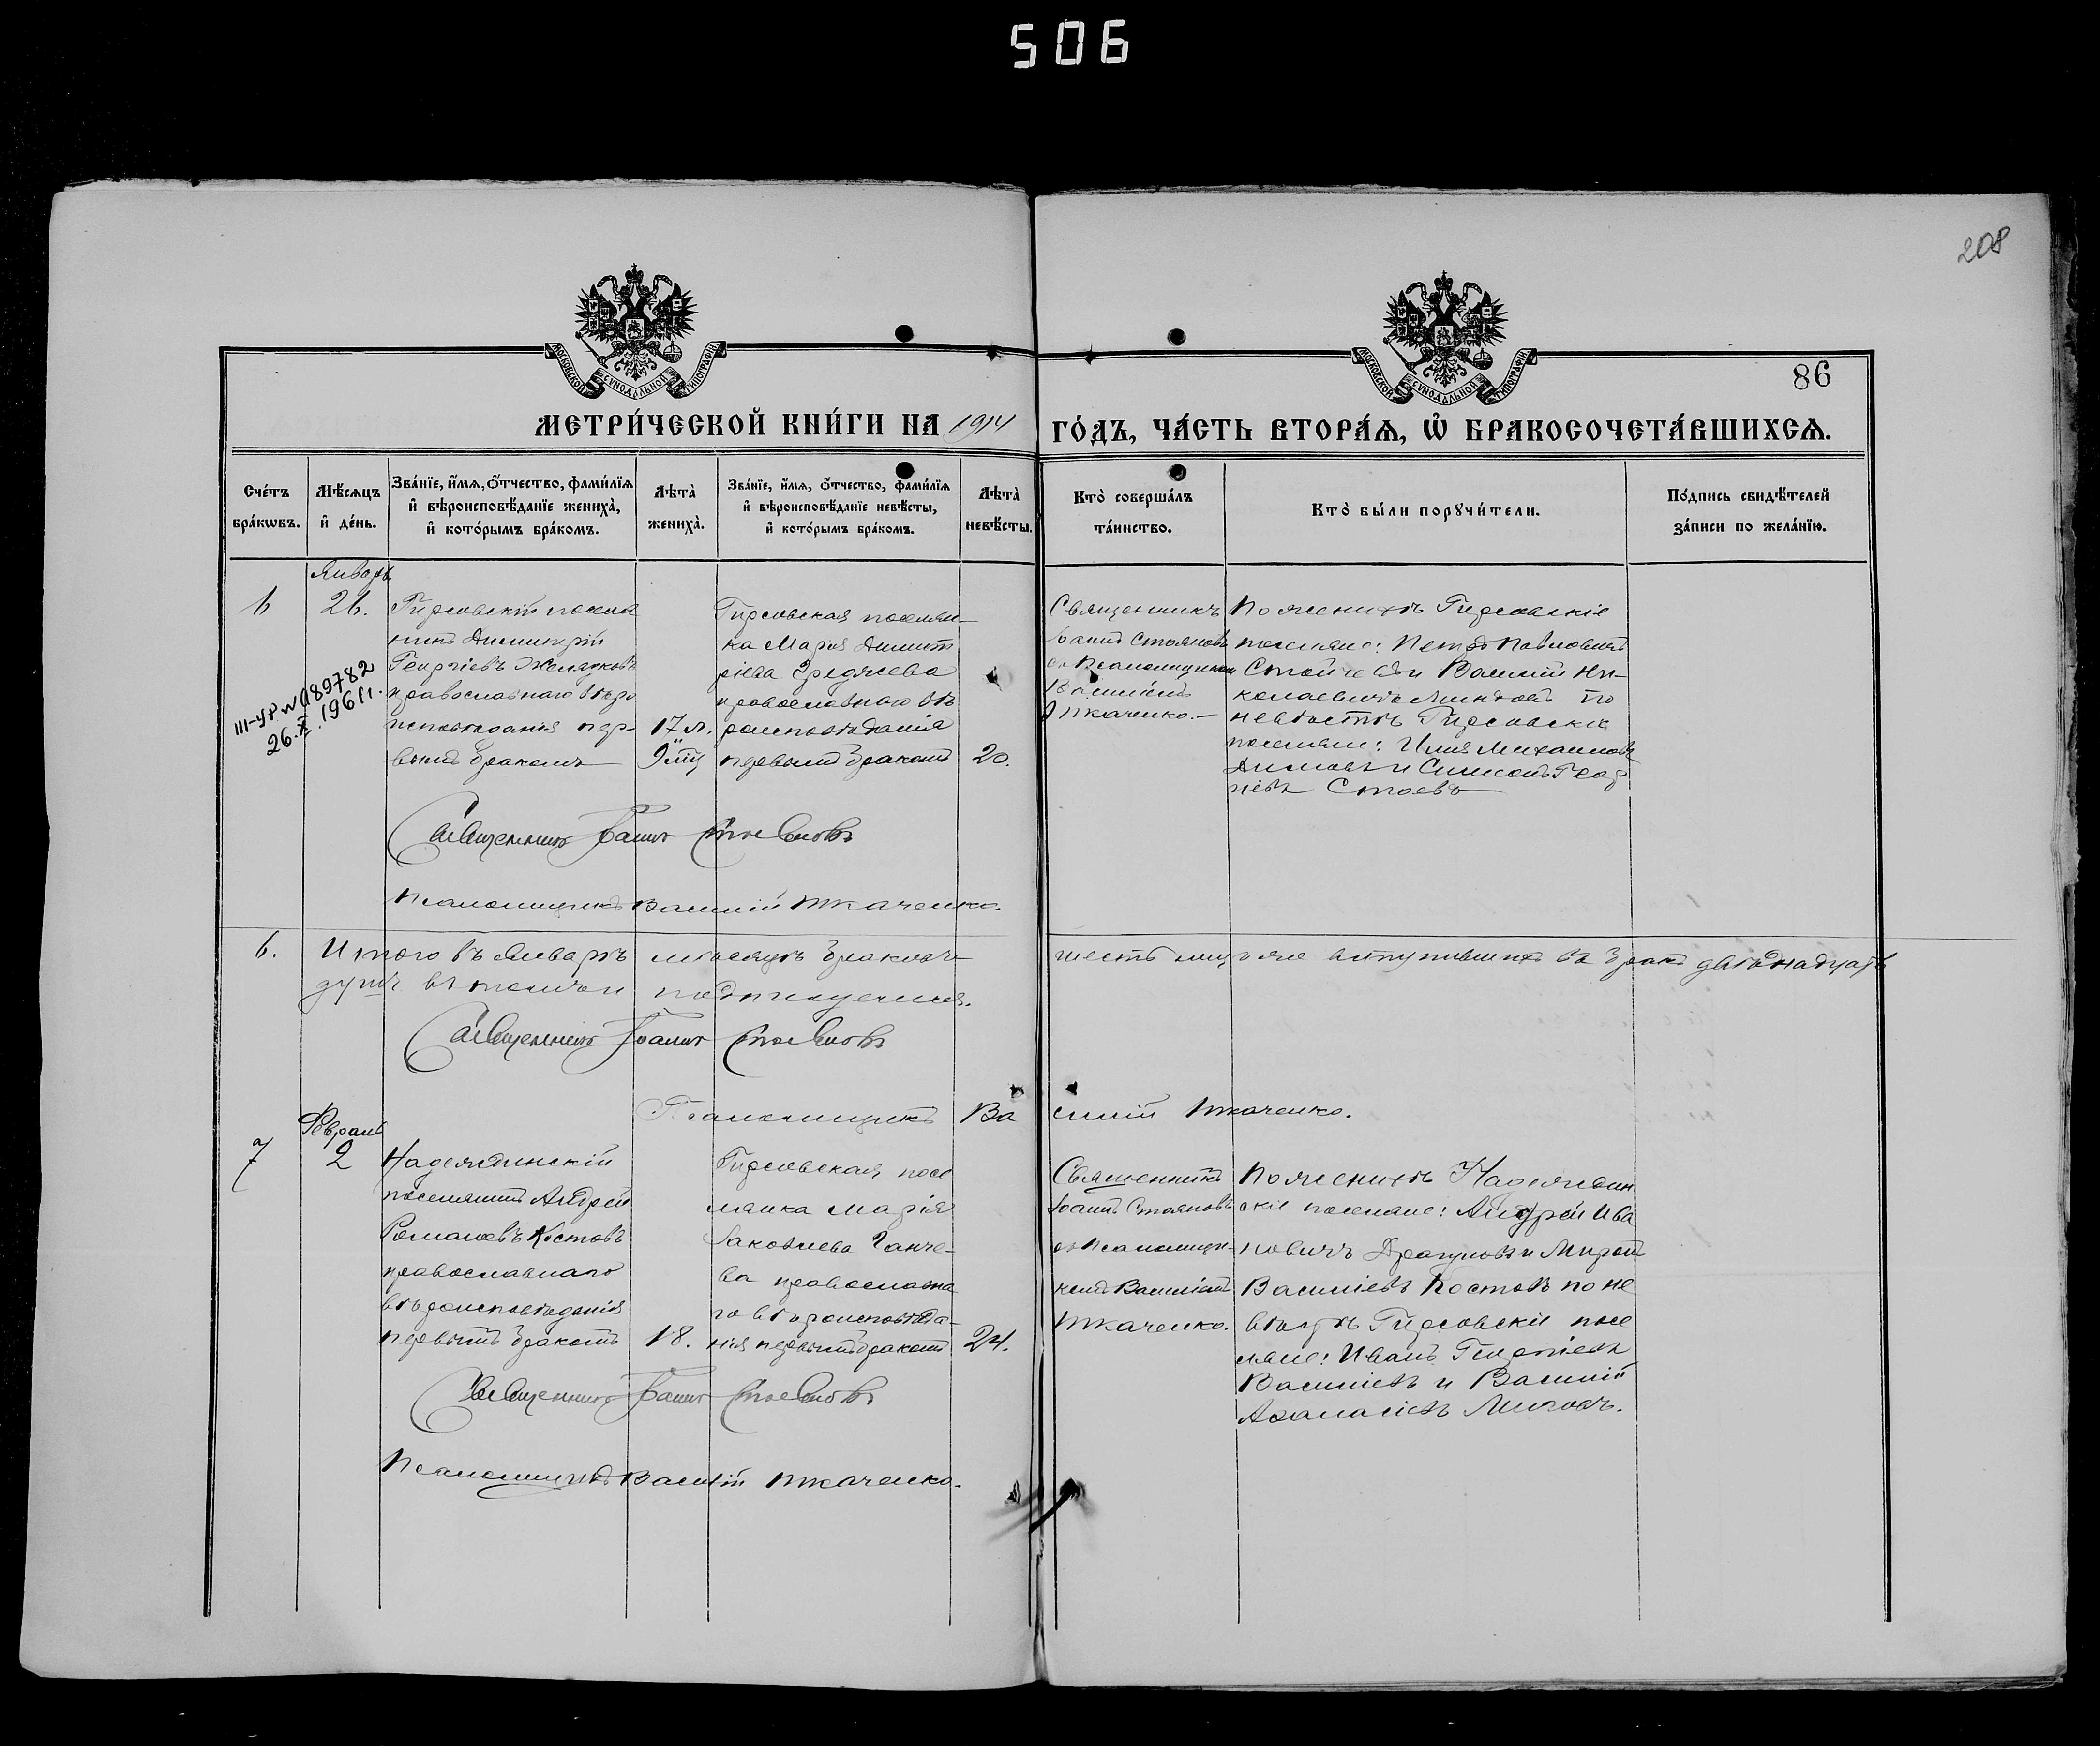 506
208
86
МОСКОВСКОЙ СѴНОДАЛЬНОЙ ТИПОГРАФІИ
МОСКОВСКОЙ СѴНОДАЛЬНОЙ ТИПОГРАФІИ
МЕТРИ́ЧЕСКОЙ КНИ́ГИ НА 1914 ГО́ДЪ, ЧА́СТЬ ВТОРА́Ѧ, Ѽ БРАКОСОЧЕТА́ВШИХСѦ.
Сче́тъ
бра́кѡвъ.
Мѣ́сѧцъ
и҆ де́нь.
Зва́нїе, и҆́мѧ, ѻ҆́тчество, фами́лїѧ
и҆ вѣроисповѣ́данїе жениха̀,
и҆ кото́рымъ бра́комъ.
Лѣта̀
жениха̀.
Зва́нїе, и҆́мѧ, ѻ҆́тчество, фами́лїѧ
и҆ вѣроисповѣ́данїе невѣ́сты,
и҆ кото́рымъ бра́комъ.
Лѣта̀
невѣ́сты.
Кто̀ соверша́лъ
та́инство.
Кто̀ бы́ли порꙋчи́тели.
По́дпись свидѣ́телей
за́писи по жела́нїю.
6
Январь
26.
III-УР № 089782
26.X.1961г.
Гирсовскій посел
нинъ Димитрій
Георгіевъ Желязковъ
православнаго вѣро
исповѣданія пер-
вымъ бракомъ
17 л.
9 мц
Гирсовская поселян-
ка Марія Димит
ріева
православнаго вѣ
роисповѣданія
первымъ бракомъ
20.
Священникъ
Іоаннъ Стояновъ
съ Псаломщикомъ
Василіемъ
Ткаченко.—
По женихѣ Гирсовскіе
поселяне: Петръ Павловичъ
Стойчевъ и Василій Ни-
колаевичъ по
невѣстѣ Гирсовскіе
поселяне: Илья Михаиловъ
Димовъ и Симеонъ Геор
гіевъ Стоевъ
Священникъ Іоаннъ Стояновъ
Псаломщикъ Василій Ткаченко.
6. Итого въ Январѣ мѣсяцѣ браковъ шесть лицъ же вступившихъ въ бракъ двѣнадцать
душъ въ томъ и подпишемся.
Священникъ Іоаннъ Стояновъ
Псаломщикъ Василій Ткаченко.
7
Февраль
2
Надеждинскій
поселянинъ Андрей
Романовъ Костовъ
православнаго
вѣроисповѣданія
первымъ бракомъ
18.
Гирсовская посе
лянка Марія
Іаковлева Ганче-
ва православна
го вѣроисповѣда-
нія первымъ бракомъ
24.
Священникъ
Іоаннъ Стояновъ
съ Псаломщи-
комъ Василіемъ
Ткаченко.
По женихѣ Надеждин
скіе поселяне: Андрей Ива
новичъ Драгуновъ и Миронъ
Василіевъ Костовъ по не
вѣстѣ Гирсовскіе посе
ляне: Иванъ Георгіевъ
Василіевъ и Василій
Афанасіевъ Митовъ.
Священникъ Іоаннъ Стояновъ
Псаломщикъ Василій Ткаченко.